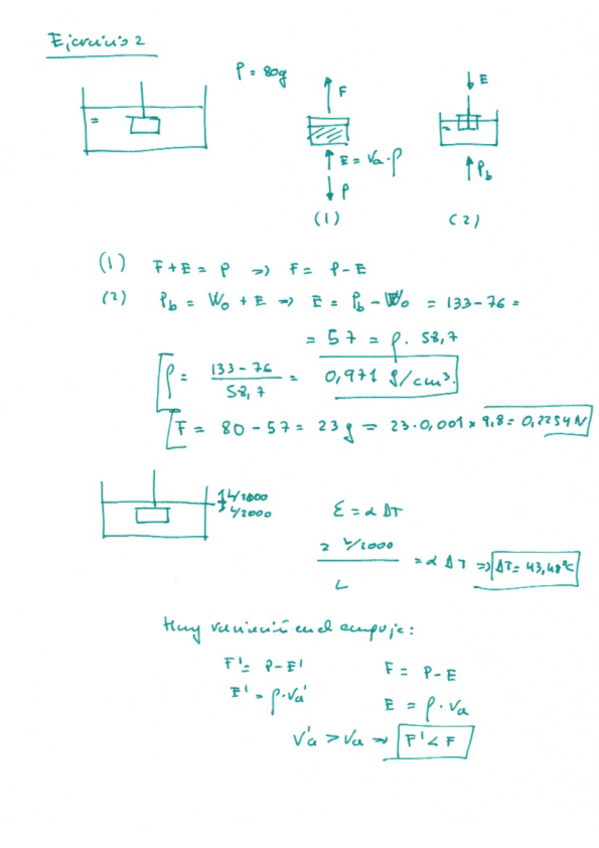 Ejercicio 2
P = 80g
F
E
E = Va·ρ
P
Pb
(1)
(2)
(1) F+E = P => F = P-E
(2) Pb = Wo + E => E = Pb - Wo = 133-76 =
= 57 = ρ. 58,7
ρ = 133-76 / 58,7 = 0,971 g/cm³.
F = 80-57 = 23g = 23·0,001 x 9,8 = 0,2254N
L/2000
L/2000
ε = α ΔT
2 L/2000 / L = α ΔT => ΔT = 43,48°C
Hay variación en el empuje:
F' = P-E'
F = P-E
E' = ρ·Va'
E = ρ·Va
V'a > Va => F' < F